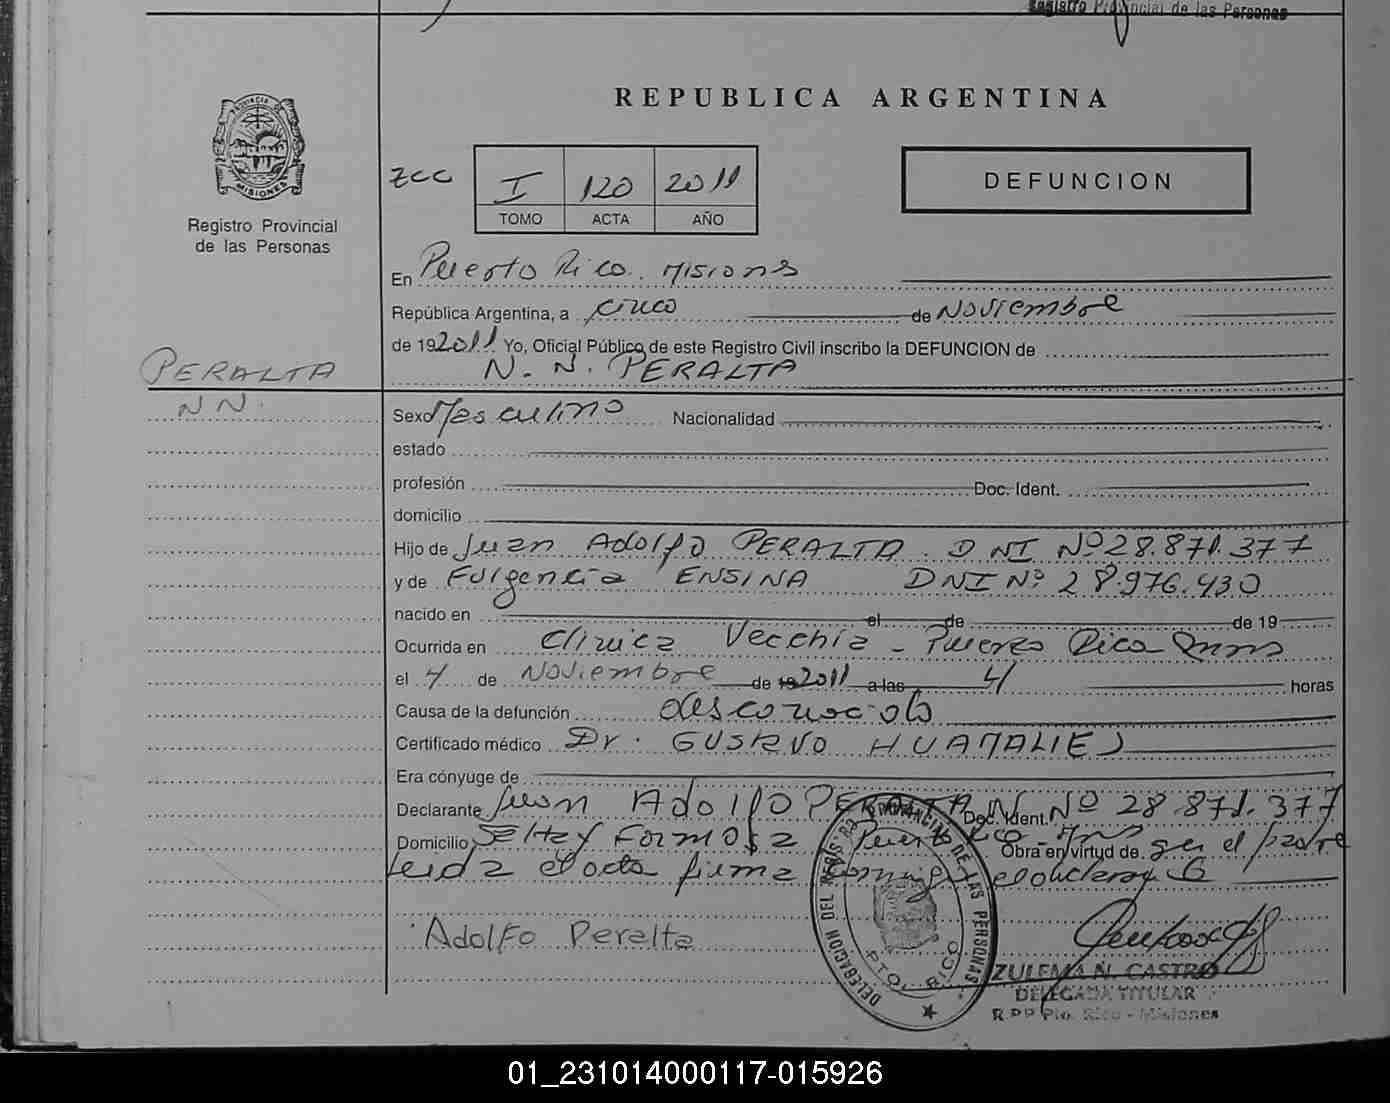 Registro Provincial de las Personas
REPUBLICA ARGENTINA
PROVINCIA DE MISIONES
Registro Provincial
de las Personas
ZCC
I 120 2011
TOMO ACTA AÑO
DEFUNCION
En Puerto Rico. Misiones
República Argentina, a cinco de Noviembre
de 192011 Yo, Oficial Público de este Registro Civil inscribo la DEFUNCION de
N. N. PERALTA
PERALTA
NN.
Sexo Masculino Nacionalidad
estado
profesión Doc. Ident.
domicilio
Hijo de Juan Adolfo PERALTA. DNI Nº 28.871.377
y de Fulgencia ENSINA DNI Nº 28.976.430
nacido en el de de 19
Ocurrida en Clinica Vecchia - Puerto Rico Mnes
el 4 de Noviembre de 19 2011 a las 4 horas
Causa de la defunción desconocido
Certificado médico Dr. GUSTAVO HUAMALIES
Era cónyuge de
Declarante Juan Adolfo PERALTA Doc. Ident. Nº 28.871.377
Domicilio Formosa Puerto Rico Mns Obra en virtud de ser el padre
Leida el acta firma conmigo el declarante
Adolfo Peralta
DELEGACION DEL REGISTRO PROVINCIAL DE LAS PERSONAS
PTO. RICO
ZULEMA N. CASTRO
DELEGADA TITULAR
R.P.P. Pto. Rico - Misiones
01_231014000117-015926